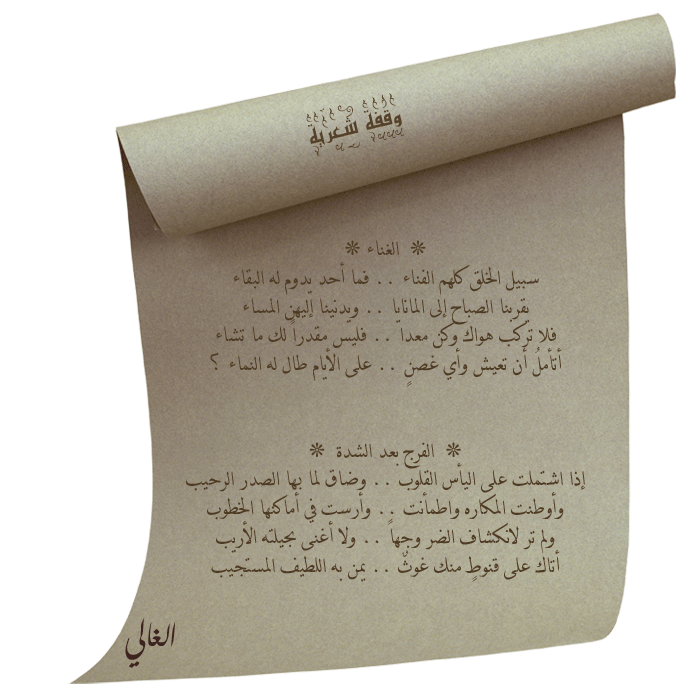 وقفة شعرية
❊ الغناء ❊
سبيل الخلق كلهم الفناء . . فما أحد يدوم له البقاء
يقربنا الصباح إلى المانايا . . ويدنينا إليهن المساء
فلا تركب هواك وكن معدا . . فليس مقدراً لك ما تشاء
أتأملُ أن تعيش وأي غصنٍ . . على الأيام طال له النماء ؟
❊ الفرج بعد الشدة ❊
إذا اشتملت على اليأس القلوب . . وضاق لما بها الصدر الرحيب
وأوطنت المكاره واطمأنت . . وأرست في أماكنها الخطوب
ولم تر لانكشاف الضر وجهاً . . ولا أغنى بحيلته الأريب
أتاك على قنوطٍ منك غوثٌ . . يمن به اللطيف المستجيب
الغالي